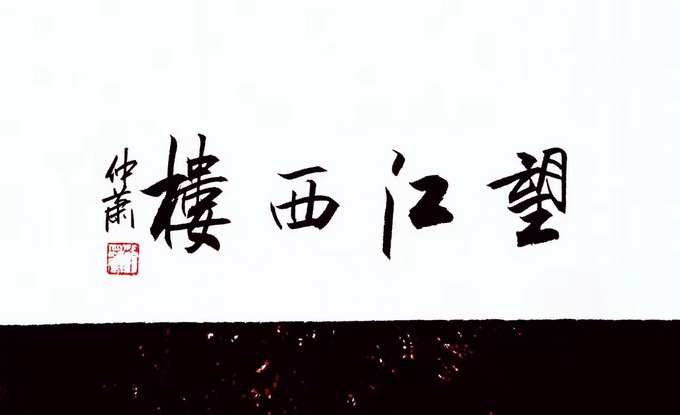 望江西樓
仲蕭